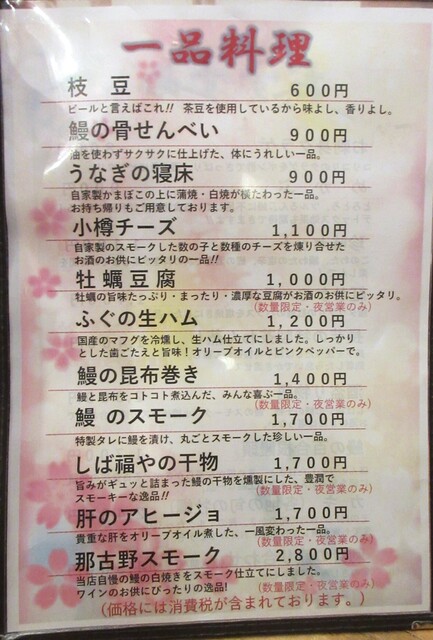 一品料理
枝 豆 600円
ビールと言えばこれ!! 茶豆を使用しているから味よし、香りよし。
鰻の骨せんべい 900円
油を使わずサクサクに仕上げた、体にうれしい一品。
うなぎの寝床 900円
自家製かまぼこの上に蒲焼・白焼が横たわった一品。
お持ち帰りもご用意しております。
小樽チーズ 1,100円
自家製のスモークした数の子と数種のチーズを煉り合せた
お酒のお供にピッタリの一品!!
牡蠣豆腐 1,000円
牡蠣の旨味たっぷり・まったり・濃厚な豆腐がお酒のお供にピッタリ。
(数量限定・夜営業のみ)
ふぐの生ハム 1,200円
国産のマフグを冷燻し、生ハム仕立てにしました。しっかり
とした歯ごたえと旨味!オリーブオイルとピンクペッパーで。
鰻の昆布巻き 1,400円
鰻と昆布をコトコト煮込んだ、みんな喜ぶ一品。
(数量限定・夜営業のみ)
鰻 のスモーク 1,700円
特製タレに鰻を漬け、丸ごとスモークした珍しい一品。
しば福やの干物 1,700円
旨みがギュッと詰まった鰻の干物を燻製にした、豊潤で
スモーキーな逸品!!
(数量限定・夜営業のみ)
肝のアヒージョ 1,700円
貴重な肝をオリーブオイル煮した、一風変わった一品。
(数量限定・夜営業のみ)
那古野スモーク 2,800円
当店自慢の鰻の白焼きをスモーク仕立てにしました。
ワインのお供にぴったりの逸品!
(数量限定・夜営業のみ)
(価格には消費税が含まれております。)